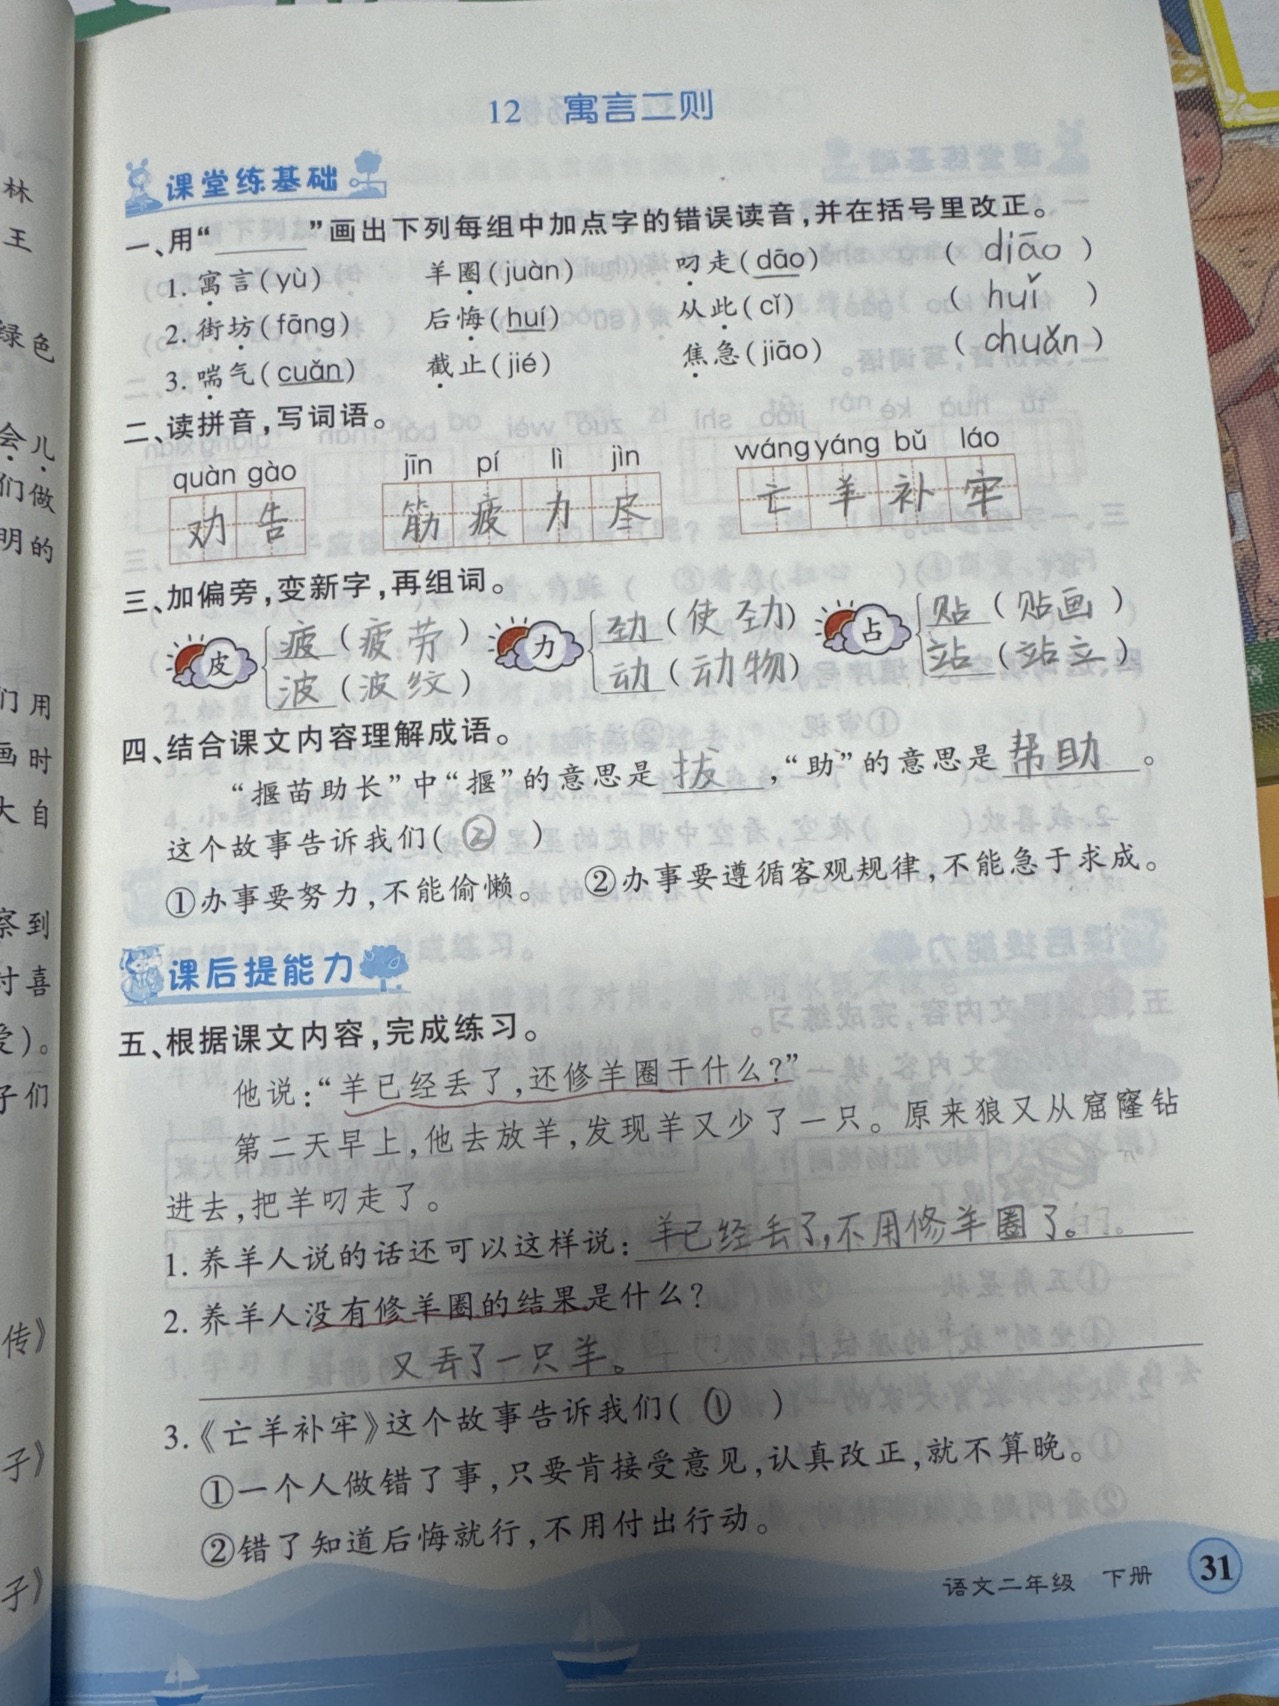 12 寓言二则
课堂练基础
一、用“______”画出下列每组中加点字的错误读音,并在括号里改正。
1. 寓言(yù) 羊圈(juàn) 叼走(dāo) ( diāo )
2. 街坊(fāng) 后悔(huí) 从此(cǐ) ( huǐ )
3. 喘气(cuǎn) 截止(jié) 焦急(jiāo) ( chuǎn )
二、读拼音,写词语。
quàn gào jīn pí lì jìn wáng yáng bǔ láo
劝告 筋疲力尽 亡羊补牢
三、加偏旁,变新字,再组词。
皮 疲(疲劳) 力 劲(使劲) 占 贴(贴画)
波(波纹) 动(动物) 站(站立)
四、结合课文内容理解成语。
“揠苗助长”中“揠”的意思是拔,“助”的意思是帮助。
这个故事告诉我们( ② )
①办事要努力,不能偷懒。 ②办事要遵循客观规律,不能急于求成。
课后提能力
五、根据课文内容,完成练习。
他说:“羊已经丢了,还修羊圈干什么?”
第二天早上,他去放羊,发现羊又少了一只。原来狼又从窟窿钻
进去,把羊叼走了。
1. 养羊人说的话还可以这样说:羊已经丢了,不用修羊圈了。
2. 养羊人没有修羊圈的结果是什么?
又丢了一只羊。
3.《亡羊补牢》这个故事告诉我们( ① )
①一个人做错了事,只要肯接受意见,认真改正,就不算晚。
②错了知道后悔就行,不用付出行动。
语文二年级 下册 31
林
王
绿色
会儿
们做
明的
们用
画时
大自
察到
讨喜
爱)。
子们
传》
子》
子》